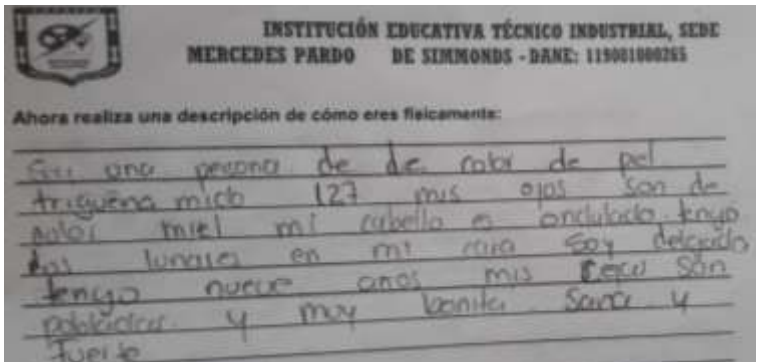 INSTITUCIÓN EDUCATIVA TÉCNICO INDUSTRIAL, SEDE
MERCEDES PARDO DE SIMMONDS - DANE: 119001000265
Ahora realiza una descripción de cómo eres físicamente:
una persona de de color de pel
trigueña mido 127 mis ojos son de
color miel mi cabello es ondulado tengo
dos lunares en mi cara soy delgado
tengo nueve anos mis son
pobladas y muy bonita sana y
fuerte